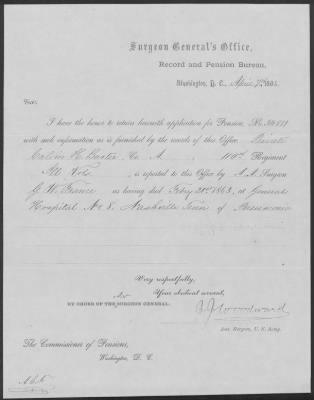 Surgeon General's Office,
Record and Pension Bureau,
Washington, D. C., April 7th, 186
Sir:
I have the honor to return herewith application for Pension, No.
with such information as is furnished by the records of this Office. Private
Calvin H. Co. A 110th Regiment
Ill Vols. is reported to this Office by A. A. Surgeon
G. W. France as having died Feby 21st 1863, at General
Hospital No 8. Nashville Tenn of Pneumonia
Very respectfully,
Your obedient servant,
BY ORDER OF THE SURGEON GENERAL.
Woodward
Ass. Surgeon, U. S. Army.
The Commissioner of Pensions,
Washington, D. C.